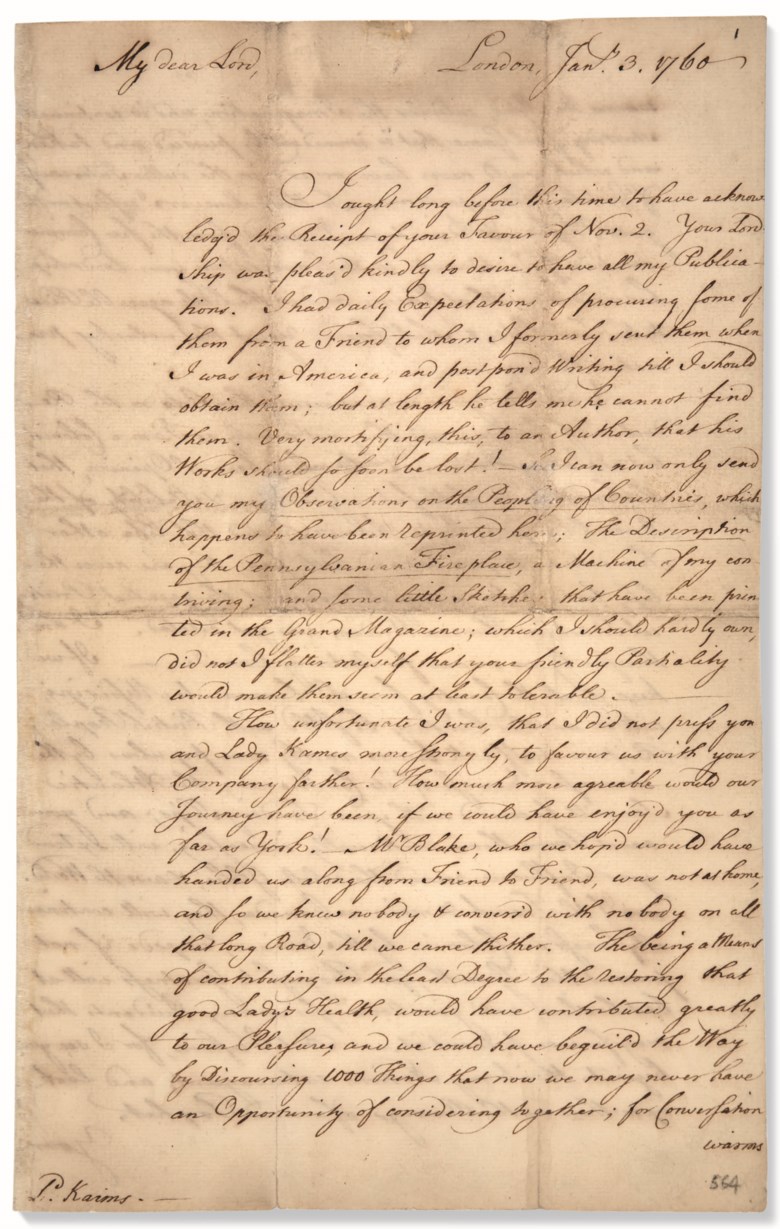 1
My dear Lord,    London, Jan.y 3. 1760
I ought long before this time to have acknow
ledg'd the Receipt of your Favour of Nov. 2. Your Lord
ship was pleas'd kindly to desire to have all my Publica-
tions. I had daily Expectations of procuring some of
them from a Friend to whom I formerly sent them when
I was in America, and postpon'd Writing till I should
obtain them; but at length he tells me he cannot find
them. Very mortifying, this, to an Author, that his
Works should so soon be lost! — So I can now only send
you my Observations on the Peopling of Countries, which
happens to have been reprinted here; The Description
of the Pennsylvanian Fireplace, a Machine of my con-
triving; and some little Sketches that have been prin
ted in the Grand Magazine; which I should hardly own,
did not I flatter myself that your friendly Partiality
would make them seem at least tolerable. —
How unfortunate I was, that I did not press you
and Lady Kames more strongly, to favour us with your
Company farther! How much more agreable would our
Journey have been, if we could have enjoy'd you as
far as York! Mr Blake, who we hop'd would have
handed us along from Friend to Friend, was not at home,
and so we knew nobody & convers'd with nobody on all
that long Road, till we came thither. The being a Means
of contributing in the least Degree to the restoring that
good Lady's Health, would have contributed greatly
to our Pleasures, and we could have beguil'd the Way
by Discoursing 1000 Things that now we may never have
an Opportunity of considering together; for Conversation
warms
Ld. Kaims. —
564